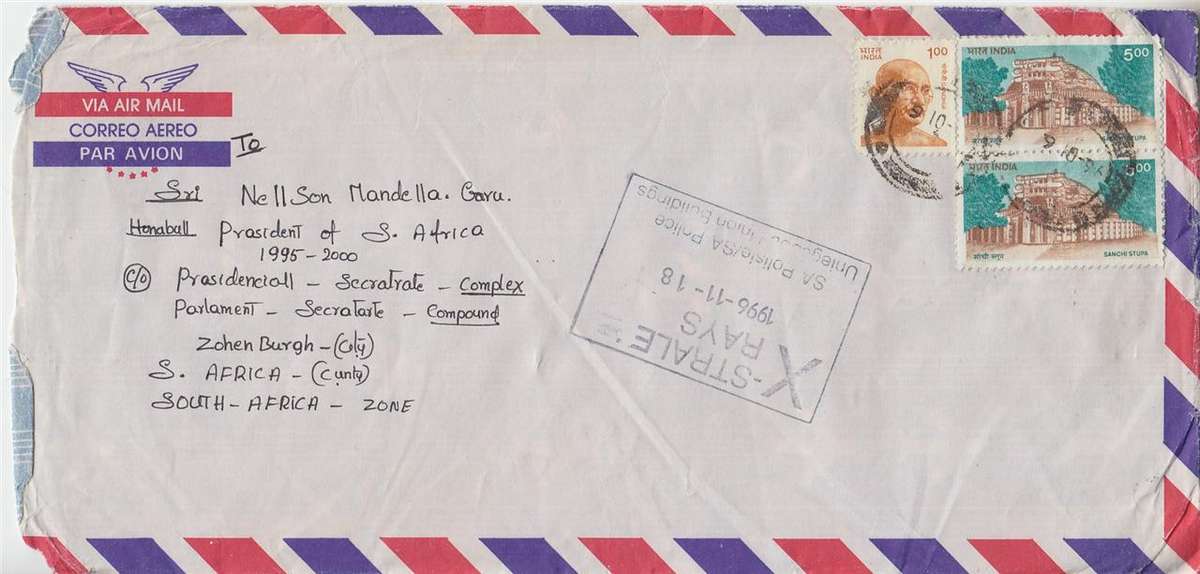 VIA AIR MAIL
CORREO AEREO
PAR AVION
To
Sri Nellson Mandella. Garu.
Honaball Prasident of S. Africa
1995-2000
c/o Prasidenciall - Secratrate - Complex
Parlament - Secratarte - Compound
Zohen Burgh - (City)
S. AFRICA - (Cunty)
SOUTH-AFRICA - ZONE
भारत
INDIA
1.00
भारत INDIA
5.00
सांची स्तूप
SANCHI STUPA
भारत INDIA
5.00
सांची स्तूप
SANCHI STUPA
X-STRALE
RAYS
1996-11-18
SA Polisie/SA Police
Union Buildings